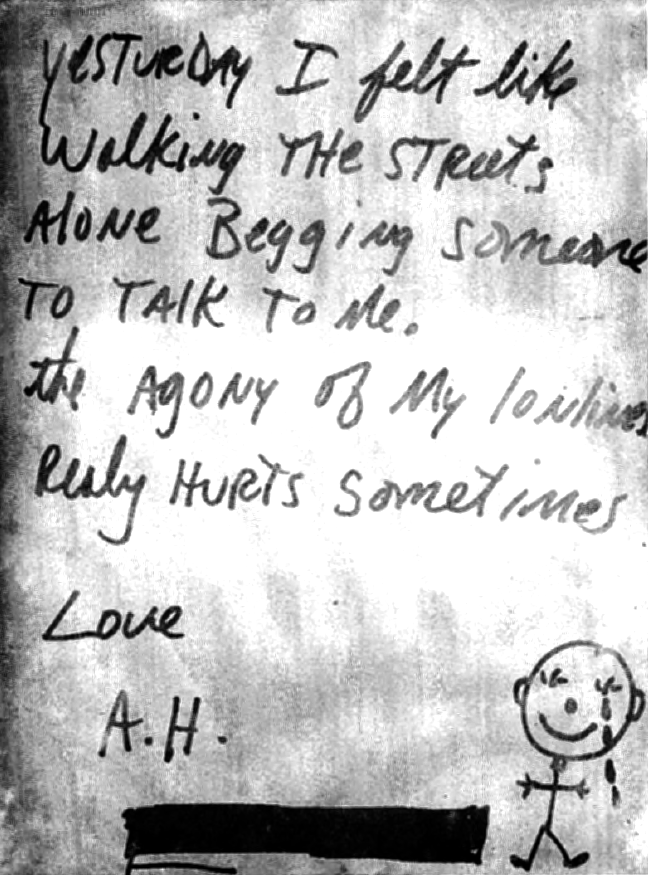 yesTuRDAy I felt like
Walking THe STReets
AloNe Begging someone
To TAlK To Me.
the AgoNy of My lonlines
Realy HuRTs Sometimes
Love
A.H.